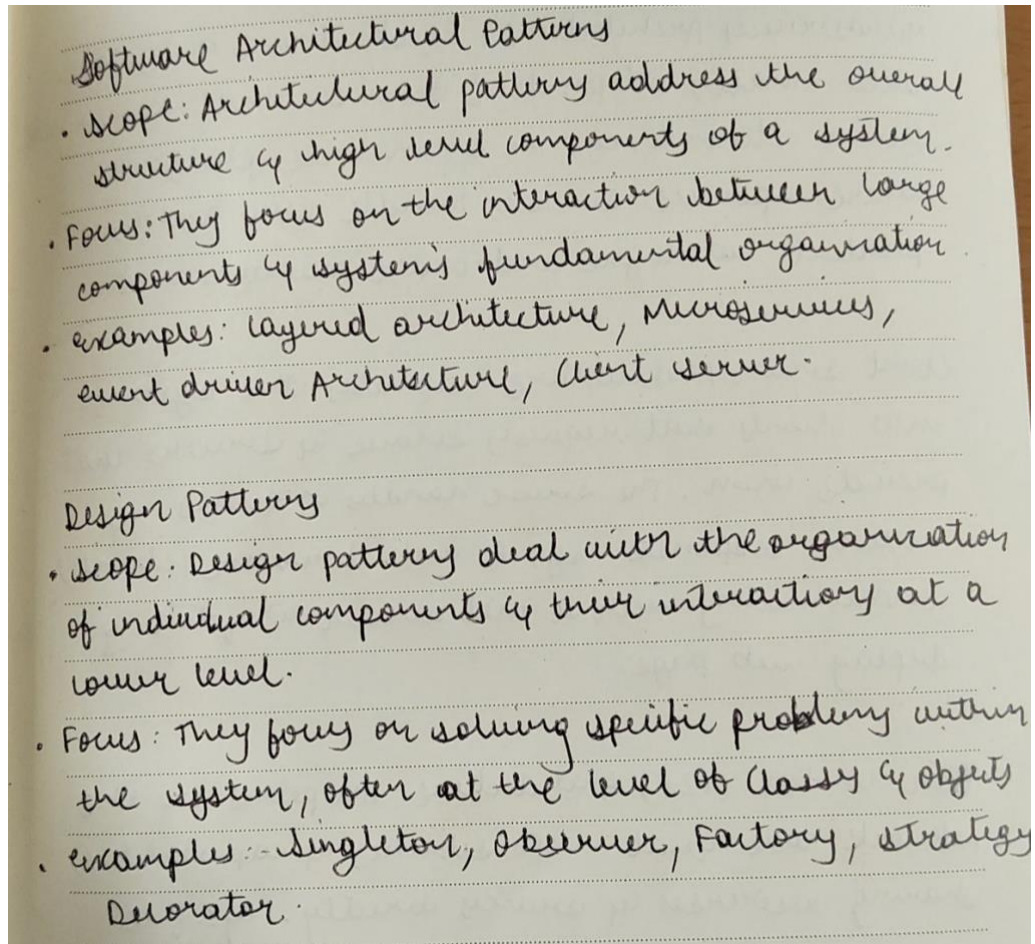 Software Architectural Patterns
• Scope: Architectural patterns address the overall
structure & high level components of a system.
• Focus: They focus on the interaction between large
components & system's fundamental organization.
• examples: Layered architecture, Microservices,
event driven Architecture, Client server.
Design Patterns
• Scope: Design patterns deal with the organization
of individual components & their interactions at a
lower level.
• Focus: They focus on solving specific problems within
the system, often at the level of Classes & objects
• examples: Singleton, Observer, Factory, Strategy
Decorator.